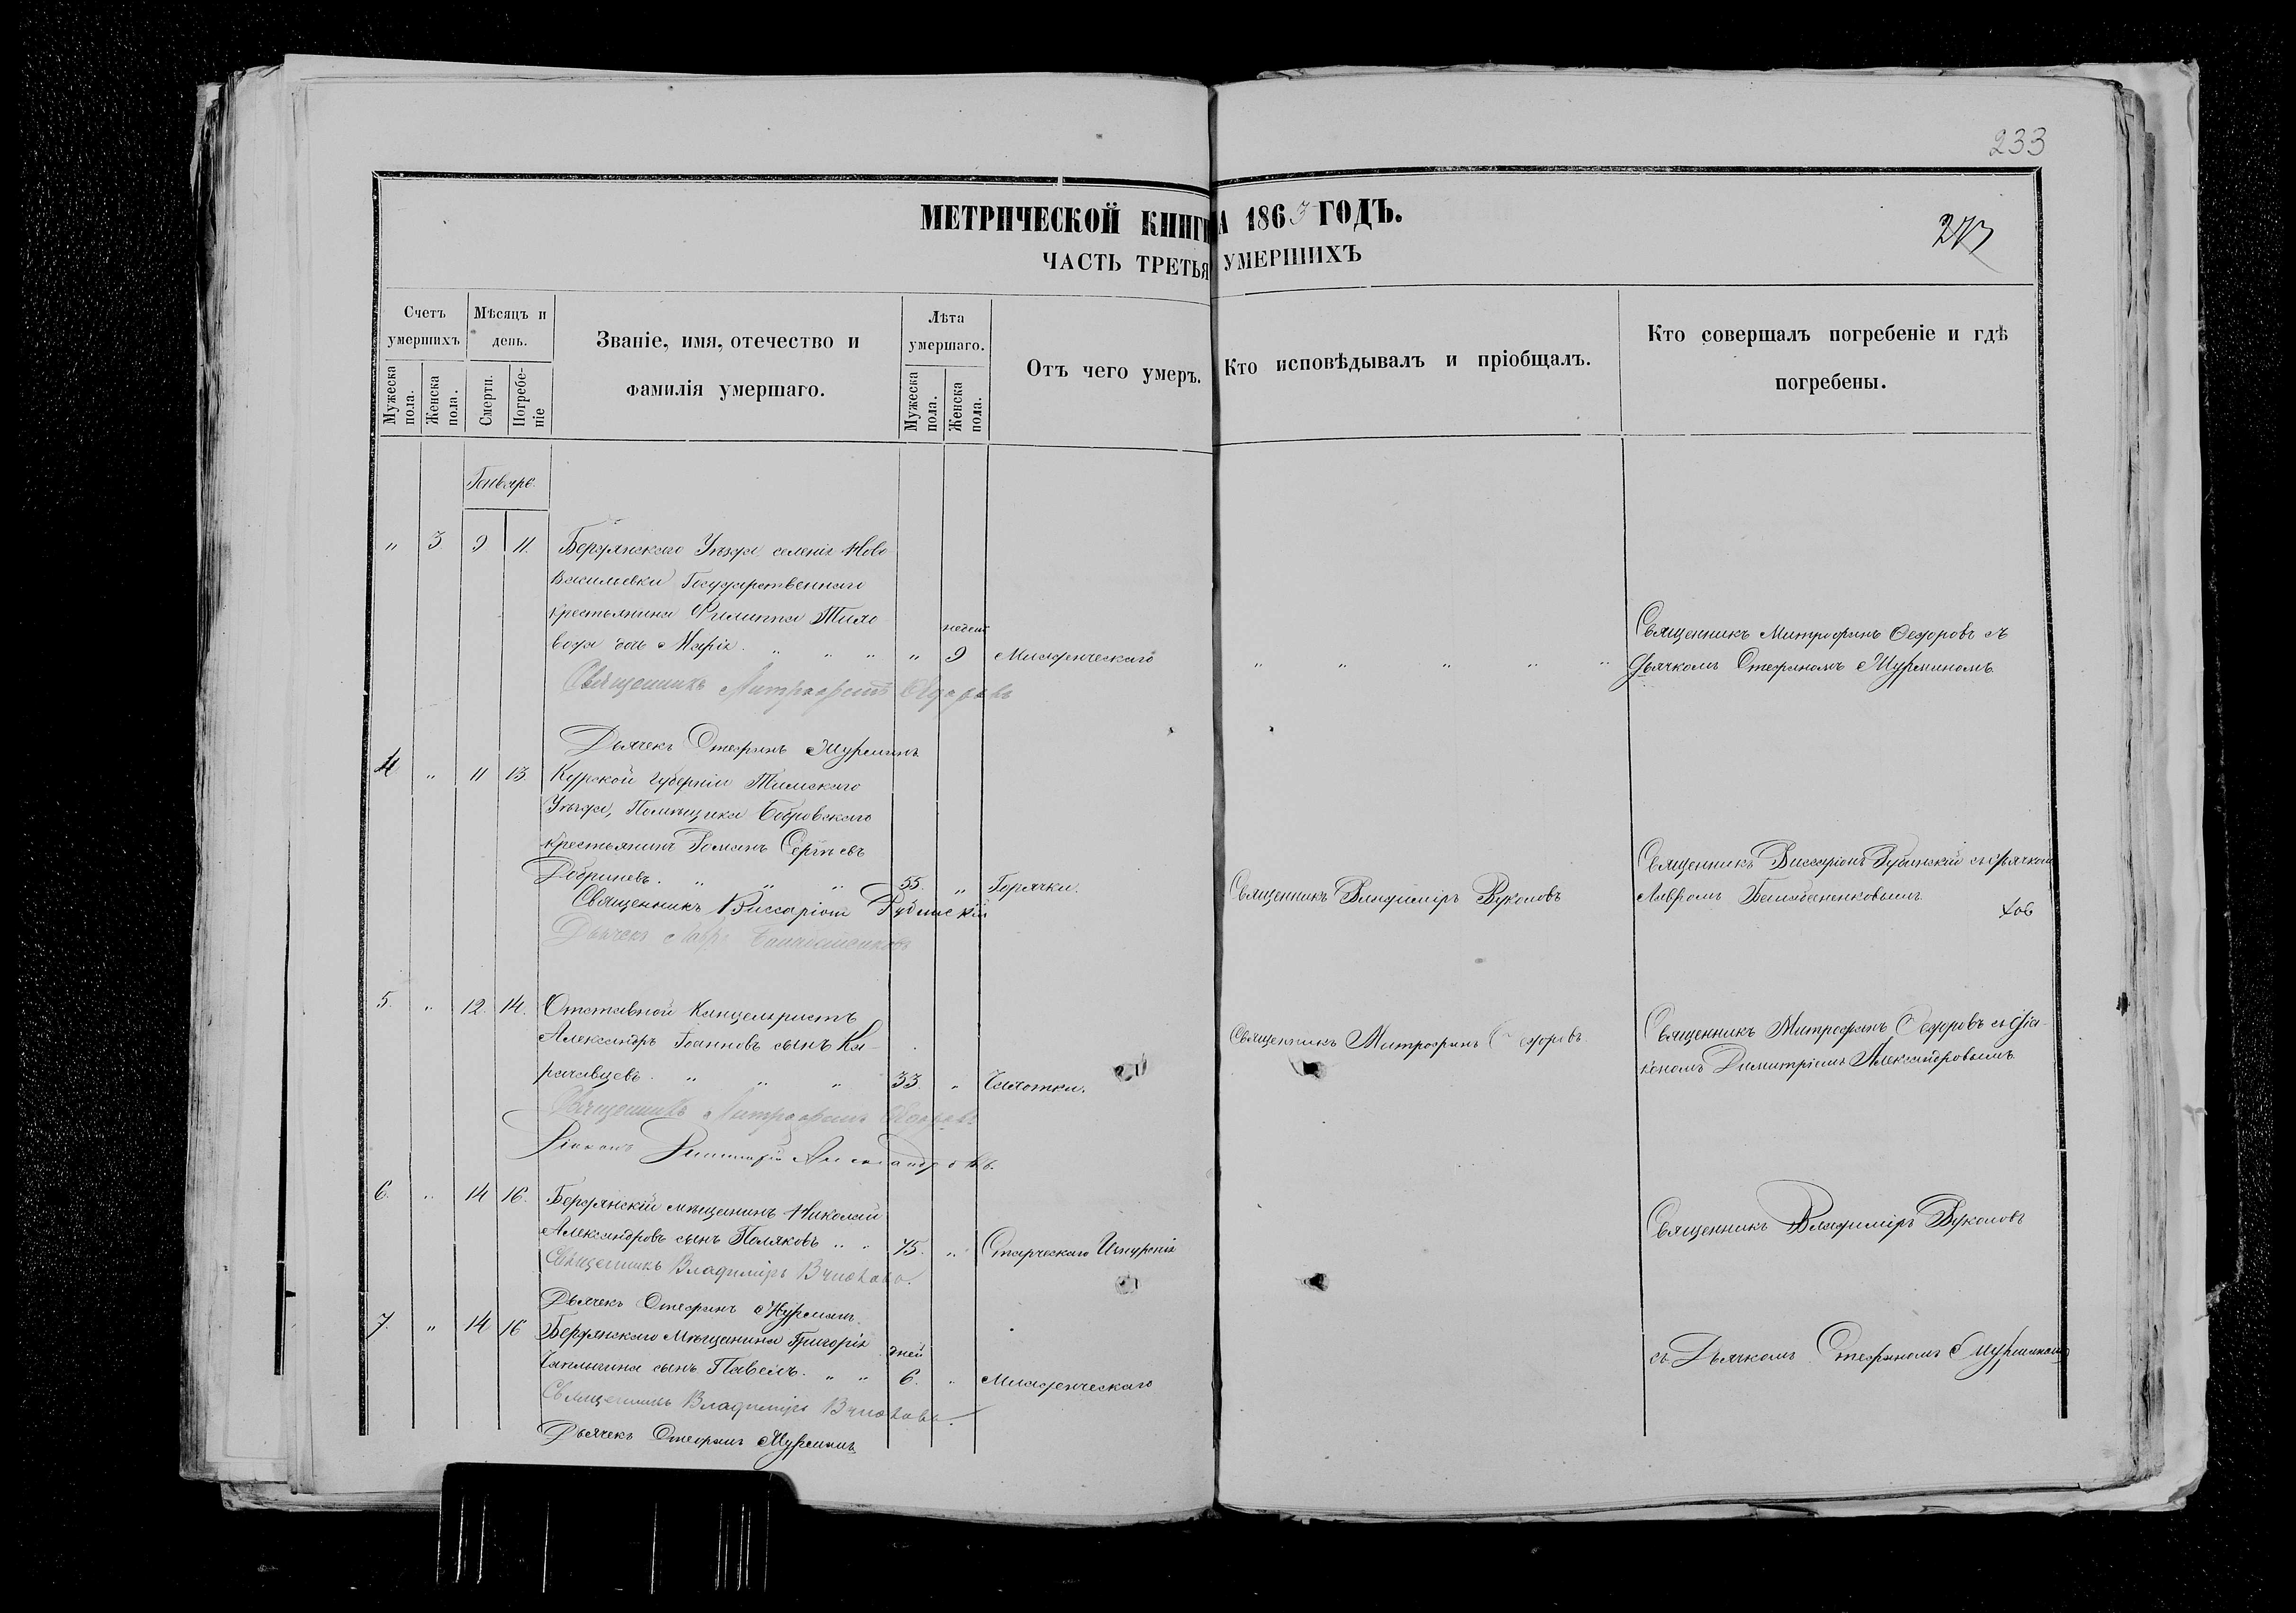 233
МЕТРИЧЕСКОЙ КНИГИ
А 1863 ГОДЪ.
ЧАСТЬ ТРЕТЬЯ
УМЕРШИХЪ
Счетъ умершихъ
Мужеска пола.
Женска пола.
Мѣсяцъ и день.
Смерти.
Погребе-ніе
Званіе, имя, отечество и
фамилія умершаго.
Лѣта умершаго.
Мужеска пола.
Женска пола.
Отъ чего умеръ.
Кто исповѣдывалъ и пріобщалъ.
Кто совершалъ погребеніе и гдѣ
погребены.
Генваре.
„ 3 9 11. Бердянскаго Уѣзда селенія Ново
Васильевки Государственнаго
крестьянина Филиппа Тило
вода дочь Марія. „ „ „ „ недел 9 Младенческаго
„ „ „ „ „
Священникъ Митрофанъ Федоровъ съ
Дьячкомъ Стефаномъ Мурминомъ
Священникъ Митрофанъ Федоровъ
Дьячекъ Стефанъ Мурминъ
4 „ 11 13 Курской губерніи Тимскаго
Уѣзда, Помѣщика Бобровскаго
крестьянинъ Романъ Сергѣевъ
Добриневъ. „ „ „ 55. „ Горячки.
Священникъ Владиміръ Вуколовъ
Священникъ Виссаріонъ Рубинскій съ дьячкомъ
Лавромъ
Священникъ Виссаріонъ Рубинскій
Дьячекъ Лавръ
5. „ 12. 14. Отставной Канцеляристъ
Александръ Іоанновъ сынъ Ка-
рачавцевъ. „ „ „ 33. „ Чахотки.
Священникъ Митрофанъ Федоровъ.
Священникъ Митрофанъ Федоровъ съ Діа-
кономъ Димитріемъ Александровымъ
Священникъ Митрофанъ Федоровъ
Діаконъ Димитрій Александровъ.
6. „ 14 16. Бердянскій мѣщанинъ Николай
Александровъ сынъ Поляковъ „ „ 75. „ Старческаго Изнуренія
Священникъ Владиміръ Вуколовъ
Священникъ Владиміръ Вуколовъ.
Дьячекъ Стефанъ Мурминъ.
7. „ 14 16 Бердянскаго Мѣщанина Григорія
Чаплыгина сынъ Павелъ. „ „ дней 6. „ Младенческаго
съ Дьячкомъ Стефаномъ Мурминомъ
Священникъ Владиміръ Вуколовъ.
Дьячекъ Стефанъ Мурминъ